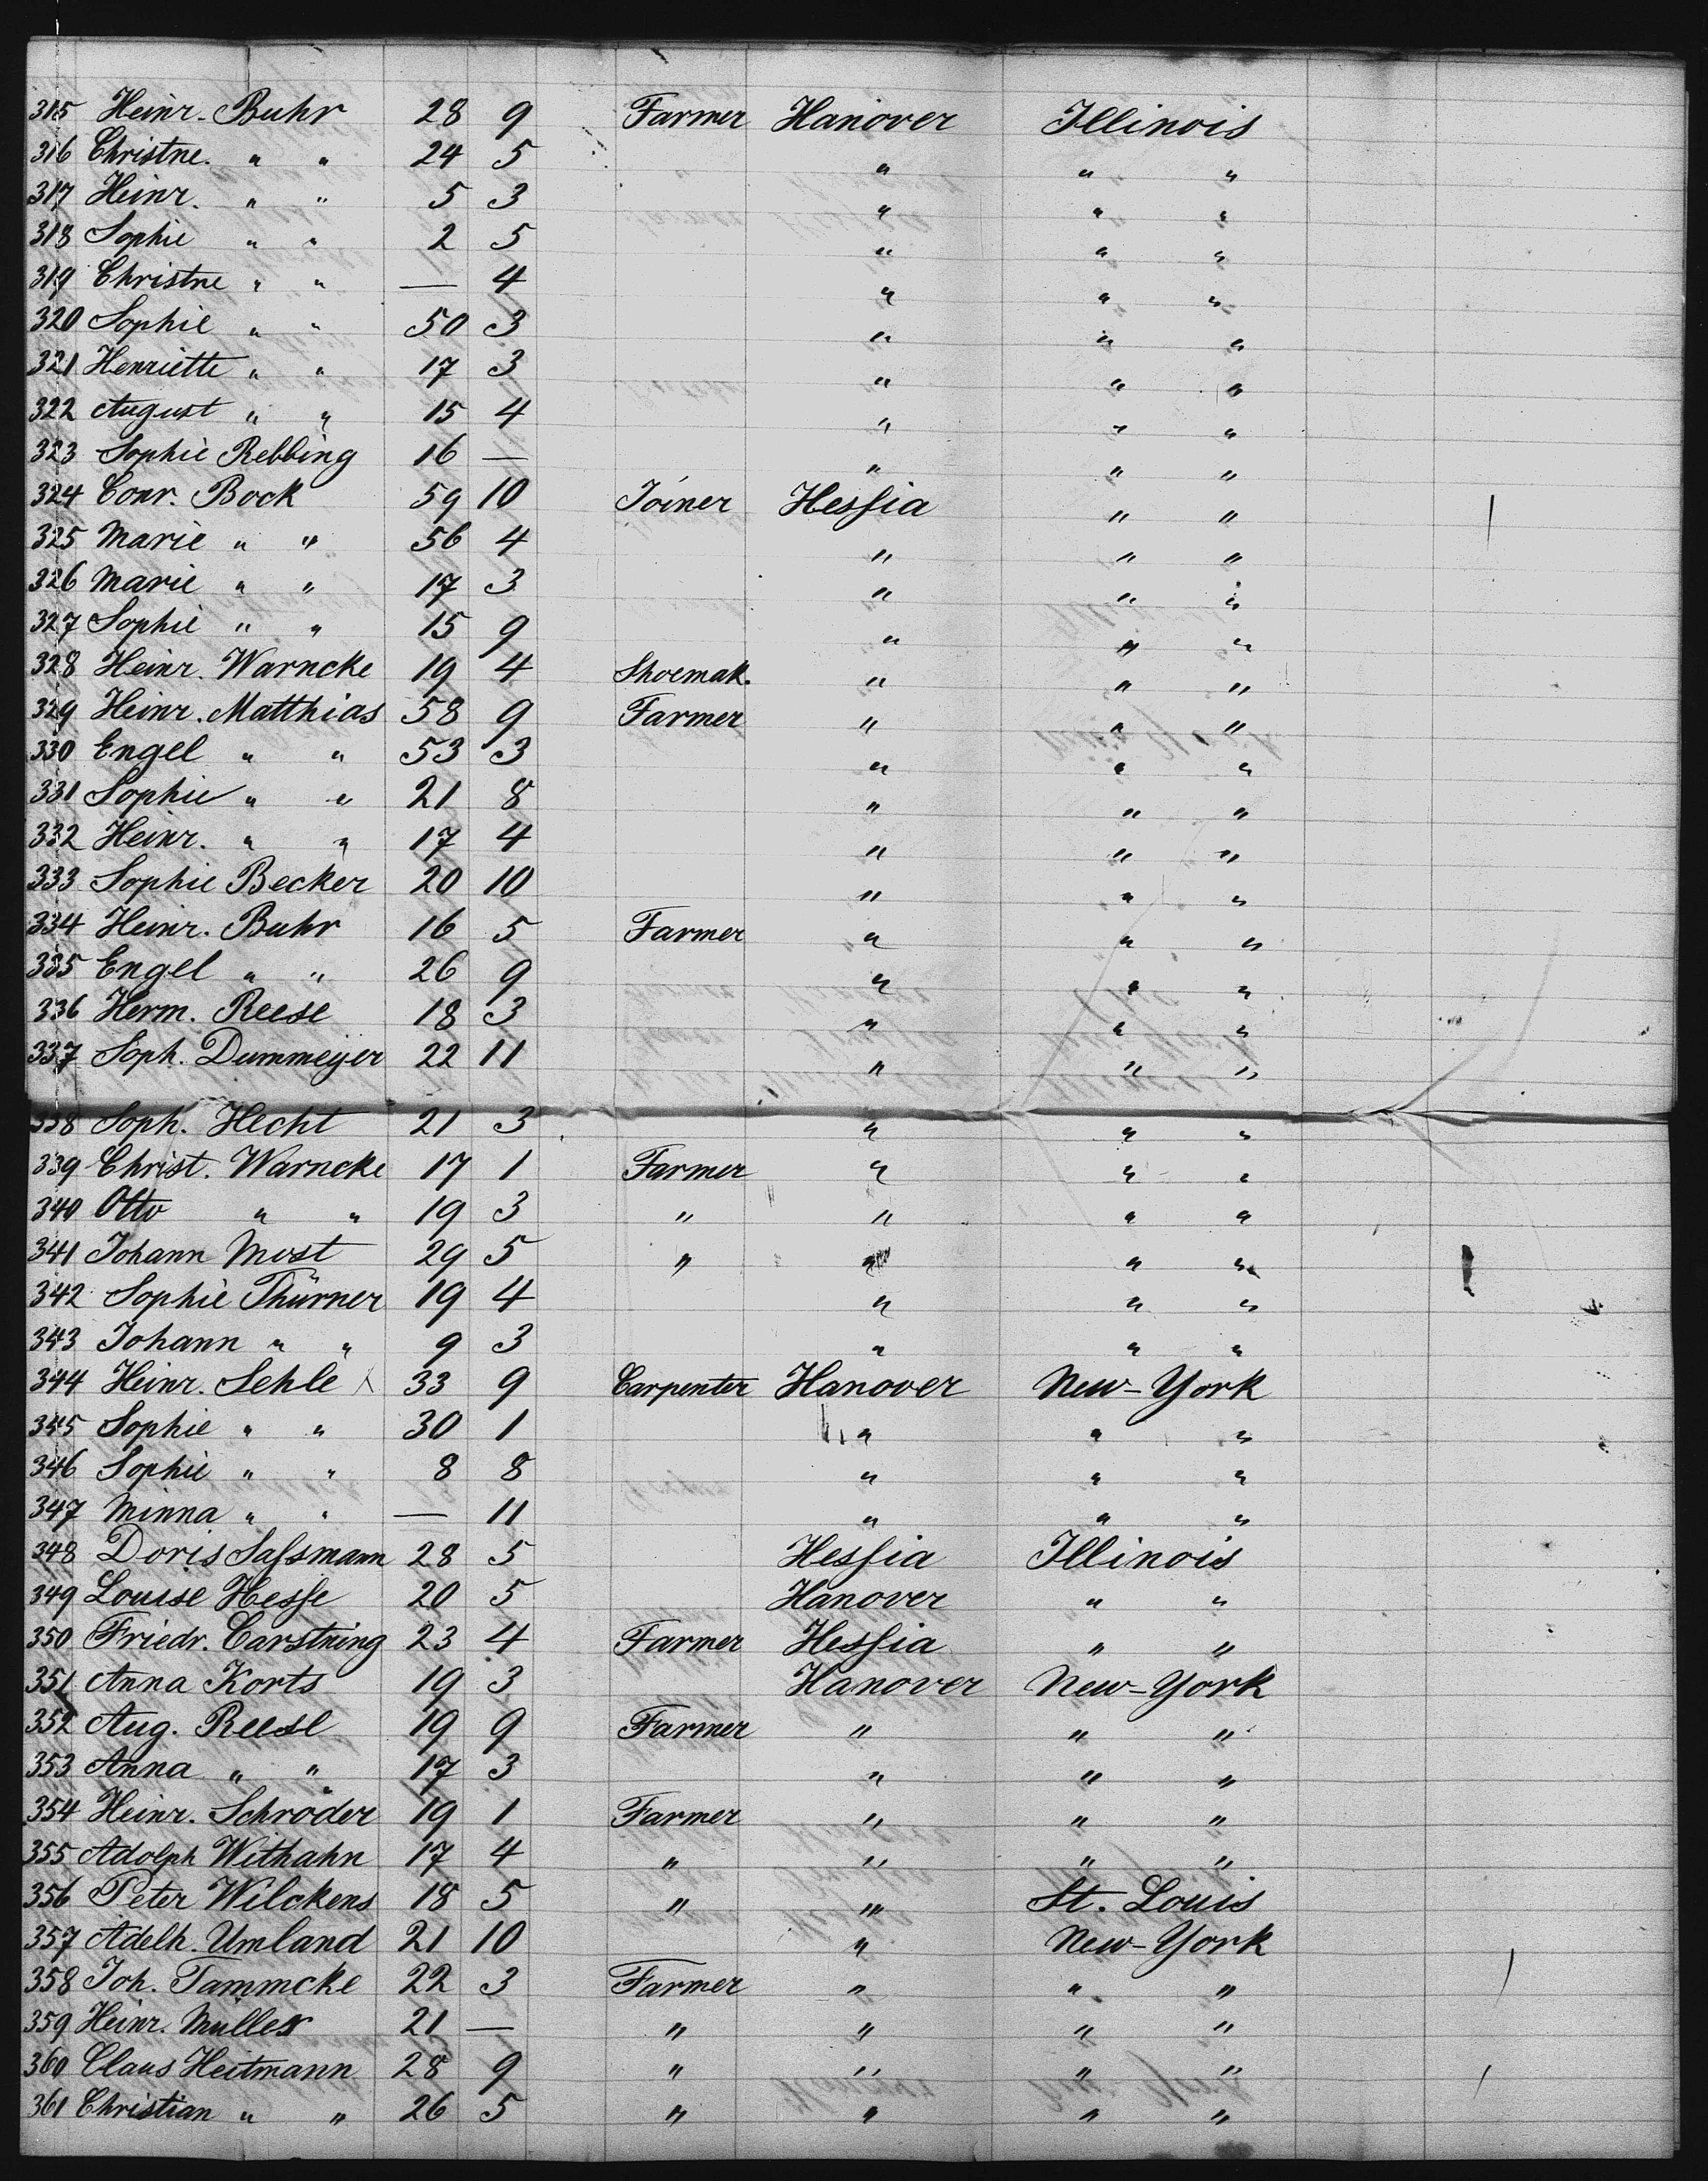 315 Heinr. Buhr 28 9 Farmer Hanover Illinois
316 Christne. " " 24 5 " " "
317 Heinr. " " 5 3 " " "
318 Sophie " " 2 5 " " "
319 Christne " " — 4 " " "
320 Sophie " " 50 3 " " "
321 Henriette " " 17 3 " " "
322 August " " 15 4 " " "
323 Sophie Rebbing 16 — " " "
324 Conr. Bock 59 10 Joiner Hessia " "
325 Marie " " 56 4 " " "
326 Marie " " 17 3 " " "
327 Sophie " " 15 9 " " "
328 Heinr. Warncke 19 4 Shoemak. " " "
329 Heinr. Matthias 58 9 Farmer " " "
330 Engel " " 53 3 " " "
331 Sophie " " 21 8 " " "
332 Heinr. " " 17 4 " " "
333 Sophie Becker 20 10 " " "
334 Heinr. Buhr 16 5 Farmer " " "
335 Engel " " 26 9 " " "
336 Herm. Reese 18 3 " " "
337 Soph. Dummeyer 22 11 " " "
338 Soph. Hecht 21 3 " " "
339 Christ. Warncke 17 1 Farmer " " "
340 Otto " " 19 3 " " " "
341 Johann Most 29 5 " " " "
342 Sophie Thürner 19 4 " " "
343 Johann " " 9 3 " " "
344 Heinr. Sehle 33 9 Carpenter Hanover New-York
345 Sophie " " 30 1 " " "
346 Sophie " " 8 8 " " "
347 Minna " " — 11 " " "
348 Doris Saſsmann 28 5 Hessia Illinois
349 Louise Hesse 20 5 Hanover " "
350 Friedr. Carstning 23 4 Farmer Hessia " "
351 Anna Korts 19 3 Hanover New-York
352 Aug. Reese 19 9 Farmer " " "
353 Anna " " 17 3 " " "
354 Heinr. Schröder 19 1 Farmer " " "
355 Adolph Withahn 17 4 " " " "
356 Peter Wilckens 18 5 " " St. Louis
357 Adelh. Umland 21 10 " New-York
358 Joh. Tammcke 22 3 Farmer " " "
359 Heinr. Müller 21 — " " " "
360 Claus Heitmann 28 9 " " " "
361 Christian " " 26 5 " " " "